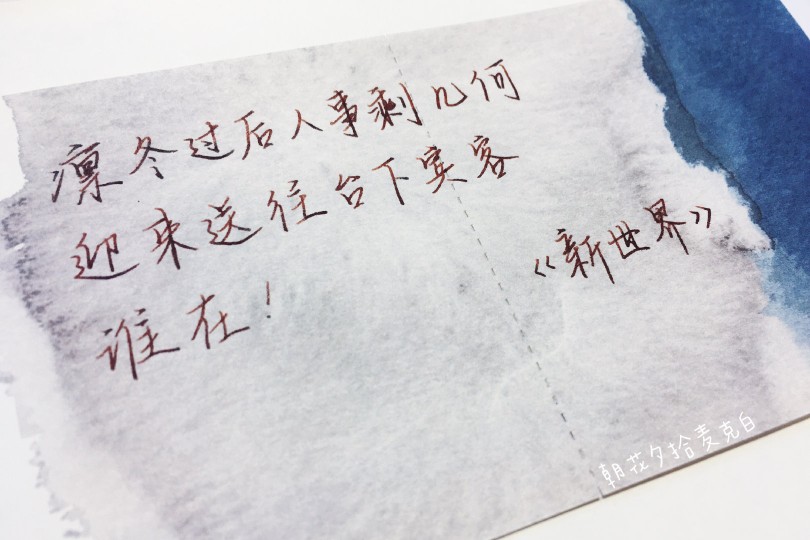 凛冬过后人事剩几何
迎来送往台下宾客
谁在！
《新世界》
朝花夕拾麦克白